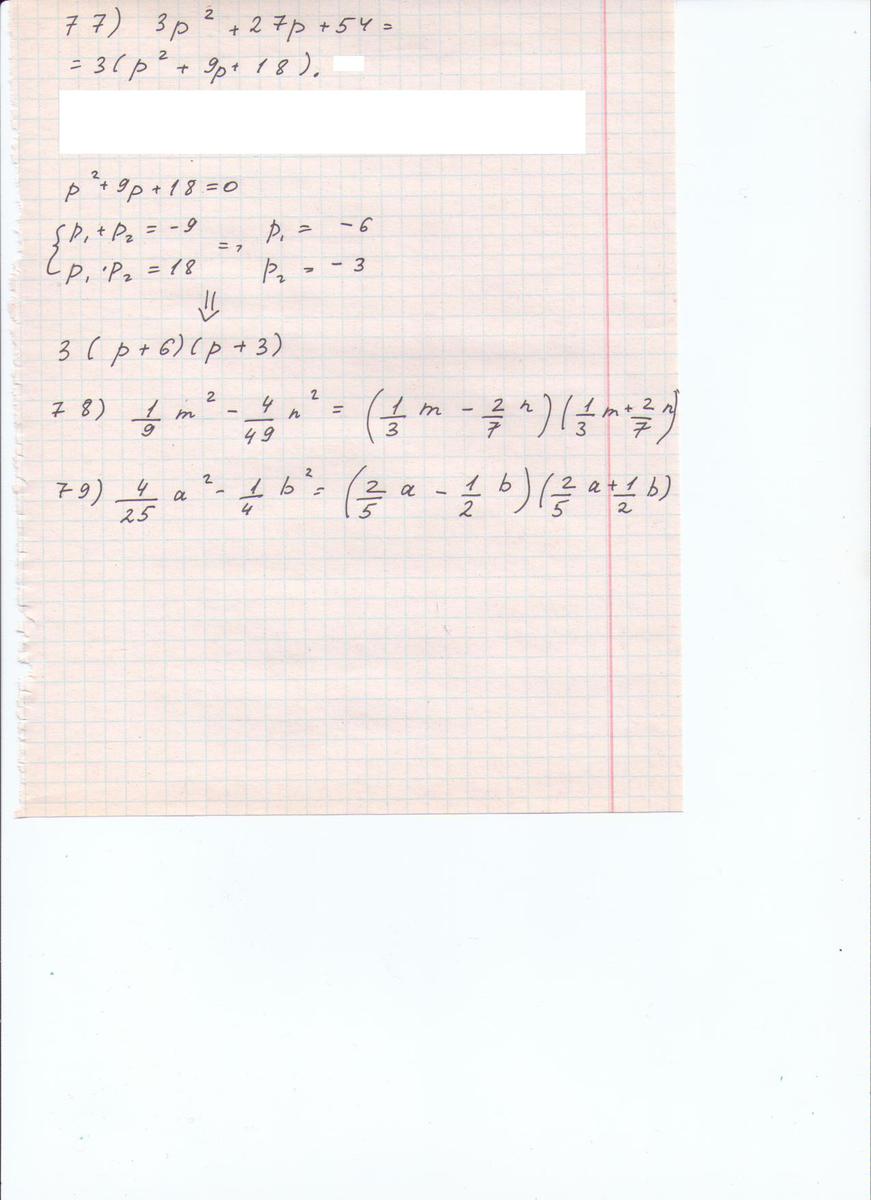 77) 3p² + 27p + 54 =
= 3(p² + 9p + 18).
p² + 9p + 18 = 0
{ p₁ + p₂ = -9 => p₁ = -6
p₁ · p₂ = 18 p₂ = -3
⇓
3(p + 6)(p + 3)
78) 1/9 m² - 4/49 n² = (1/3 m - 2/7 n)(1/3 m + 2/7 n)
79) 4/25 a² - 1/4 b² = (2/5 a - 1/2 b)(2/5 a + 1/2 b)